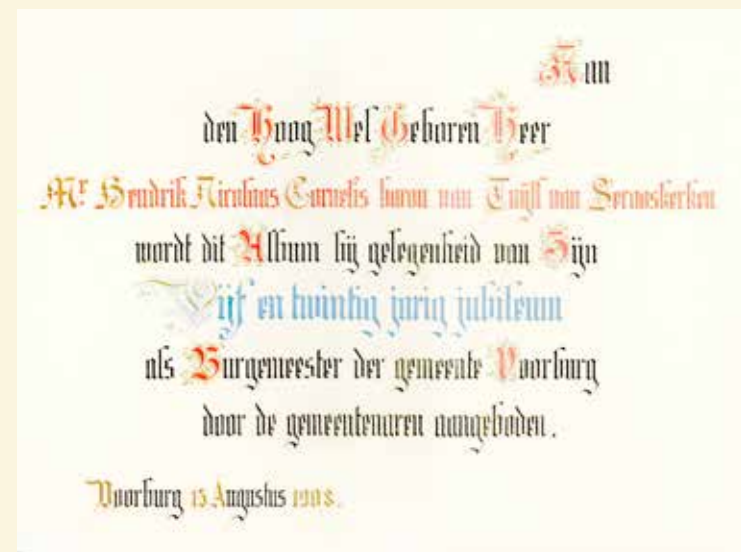 Aan
den Hoog Wel Geboren Heer
Mr. Hendrik Nicolaas Cornelis baron van Tuijll van Serooskerken
wordt dit Album bij gelegenheid van Zijn
Vijf en twintig jarig jubileum
als Burgemeester der gemeente Voorburg
door de gemeentenaren aangeboden.
Voorburg 15 Augustus 1908.